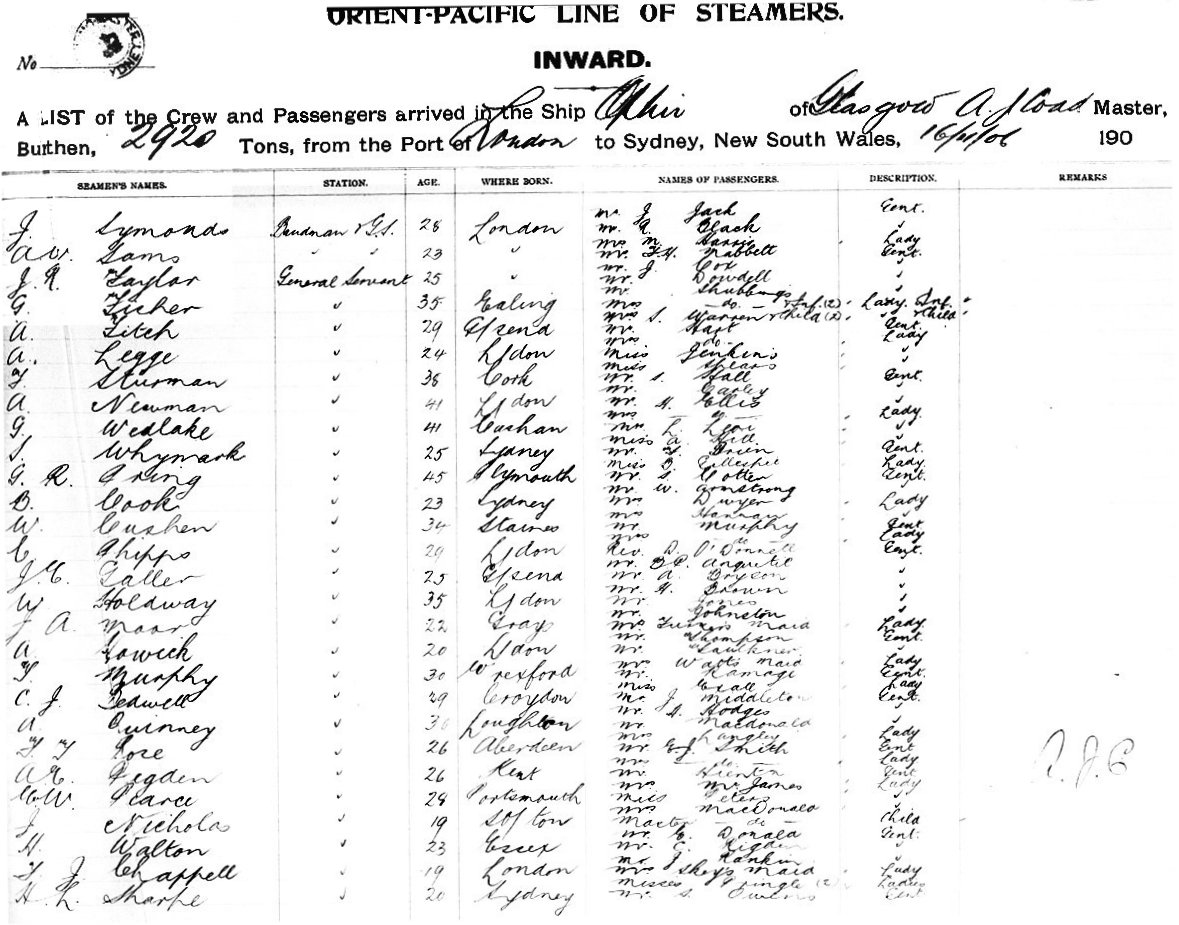 ORIENT-PACIFIC LINE OF STEAMERS.
No
INWARD.
A LIST of the Crew and Passengers arrived in the Ship Ophir of Glasgow A. J. Coad Master,
Burthen, 2920 Tons, from the Port of London to Sydney, New South Wales, 16/11/06 190
SEAMEN'S NAMES. STATION. AGE. WHERE BORN. NAMES OF PASSENGERS. DESCRIPTION. REMARKS
J. Symonds Bandman & G.S. 28 London
A. W. Sams " " 23 "
J. R. Taylor General Servant 25 "
G. Ficher " 35 Ealing
A. Fitch " 29 G/send
A. Legge " 24 L/don
F. Sturman " 38 Cork
A. Newman " 41 L/don
G. Wedlake " 41
S. Whymark " 25 Sydney
G. R. Pring " 45 Plymouth
B. Cook " 23 Sydney
W. Cushen " 34 Staines
C. Phipps " 29 L/don
J. C. Galler " 25 G/send
W. Holdway " 35 L/don
J. A. Moar " 22 Grays
A. Gowick " 20 L/don
F. Murphy " 30 Wrexford
C. J. Tedwell " 29 Croydon
A. Quinney " Loughton
F. F. Rose " 26 Aberdeen
A. C. Pigden " 26 Kent
C. W. Pearce " 28 Portsmouth
J. Nicholas " 19 So/ton
H. Walton " 23 Essex
F. J. Chappell " 19 London
H. L. Sharpe " 20 Sydney
Mr. J. Jack Gent.
Mr. R. Black "
Mrs M. Harris Lady
Mr. F. H. Nabbett Gent.
Mr. J. Cox "
Mr. Dowdell "
Mr. Stubbings
Mrs — do — & Inf. (2) Lady. Inf.
Mrs S. Warren & Child (2) " & Child
Mr. Hart Gent.
Mrs do. Lady
Miss Jenkins "
Miss Spears "
Mr. S. Hall Gent.
Mr. Garley "
Mr. H. Ellis "
Mrs — do — Lady
Mrs L. Levi "
Miss A. Hill "
Mr. F. Brien Gent.
Miss B. Gillespie Lady
Mr. S. Cotter Gent.
Mr. W. Armstrong "
Mrs Dwyer Lady
Mrs Hannay "
Mr. Murphy Gent
Mrs do Lady
Rev. D. O'Donnell Gent.
Mr. B. C. Anquetil "
Mr. A. Bryson "
Mr. H. Brown "
Mr. Jones "
Mr. Johnston "
Mrs Tucker's Maid Lady
Mr. Thompson Gent.
Mr. Faulkner "
Mrs Watts Maid Lady
Mr. Ramage Gent.
Miss Lady
Mr. J. Middleton Gent.
Mr. A. Hodges "
Mr. Macdonald "
Mrs Langley Lady
Mr. E. J. Smith Gent
Mrs — do — Lady
Mr Gent
Mrs McJames Lady
Miss Peters "
Mrs MacDonald "
Master — do — Child
Mr. E. Donald Gent.
Mr. C. Rigden "
Mr. J. Rankin "
Mrs Maid Lady
Misses Pringle (2) Ladies
Mr. S. Owens Gent